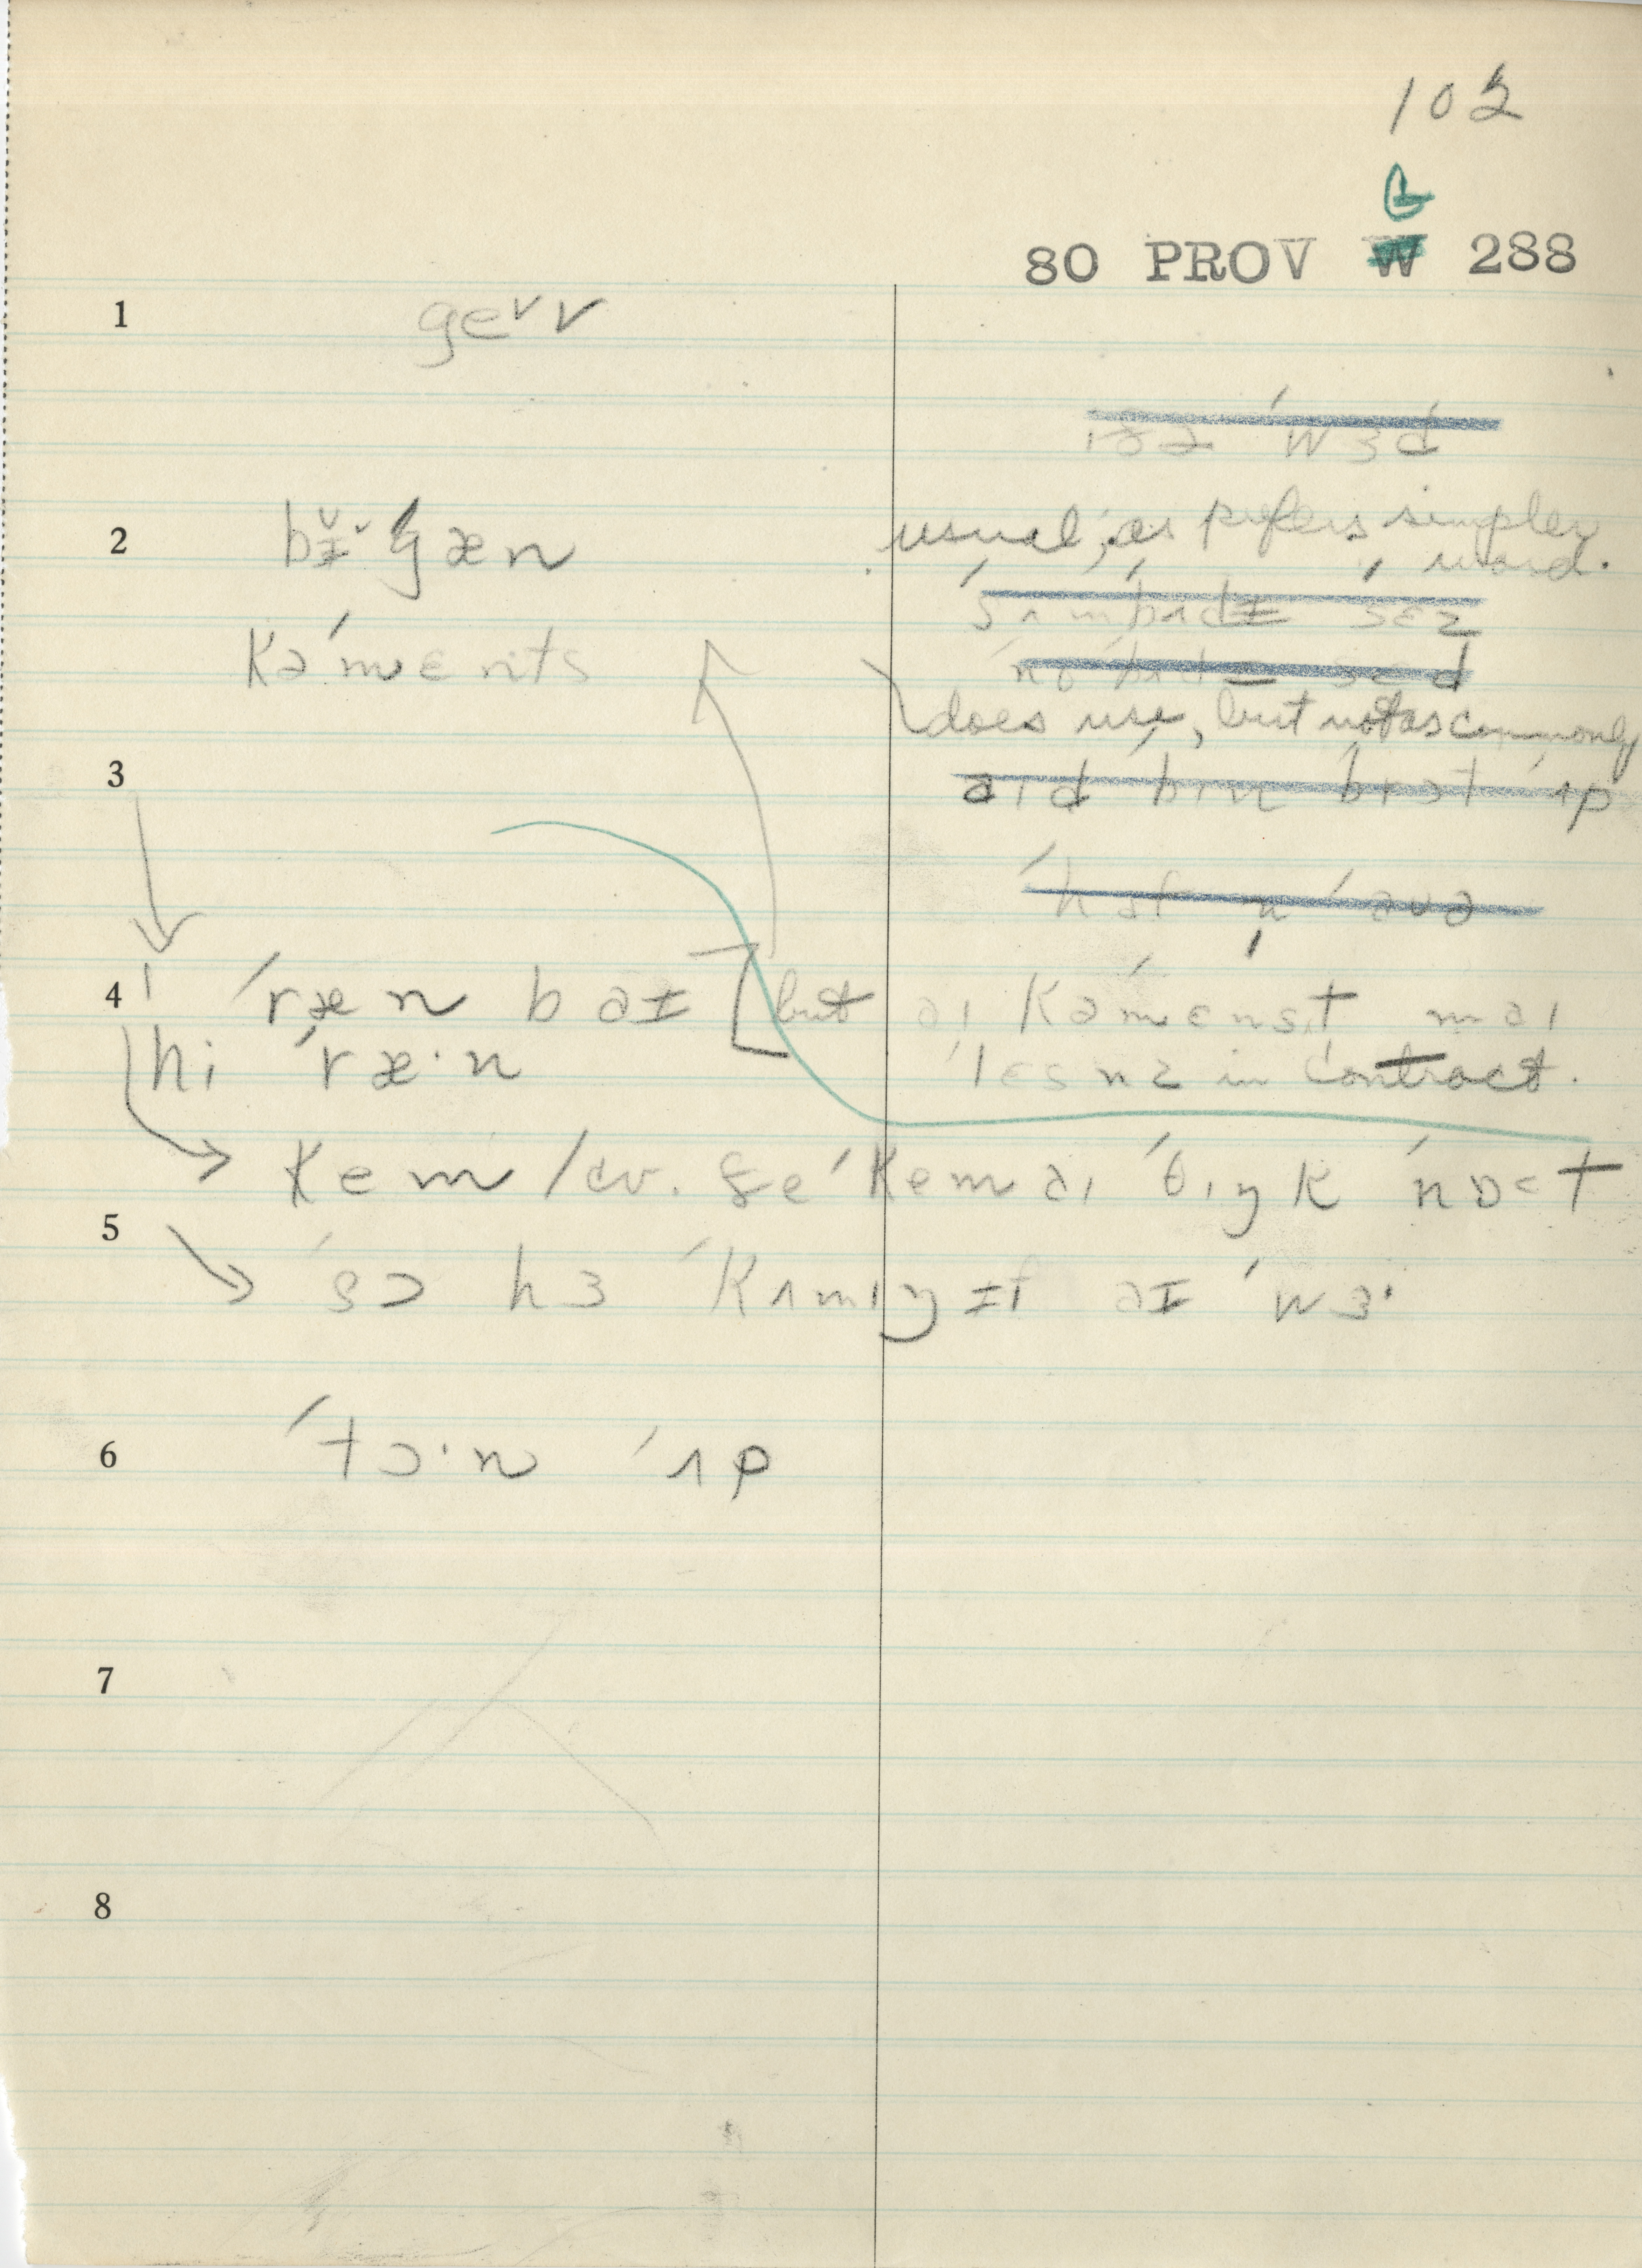 102
G
80 PROV W 288
1 gev v
ɪðə ˈwɜd
2 bɪˈgæn
usual, as prefers simpler
word.
ˈsʌmbədɪ sɛz
kəˈmɛnts
ˈnobədɪ sɛd
does use, but not as commonly
3
aɪd bɪn brɔt ˈʌp
ˈhɛf n ˈavə
4 ˈræn baɪ [but aɪ kəˈmɛnst maɪ
hi ˈræ·n lɛsnz in contract.
kem /cv. ʃe ˈkem aɪ ˈθɪŋk ˈnɒt
5 ˈsɔ hɜ ˈkʌmɪŋ ɪf aɪ ˈwɜ·
6 ˈtɔ·n ˈʌp
7
8